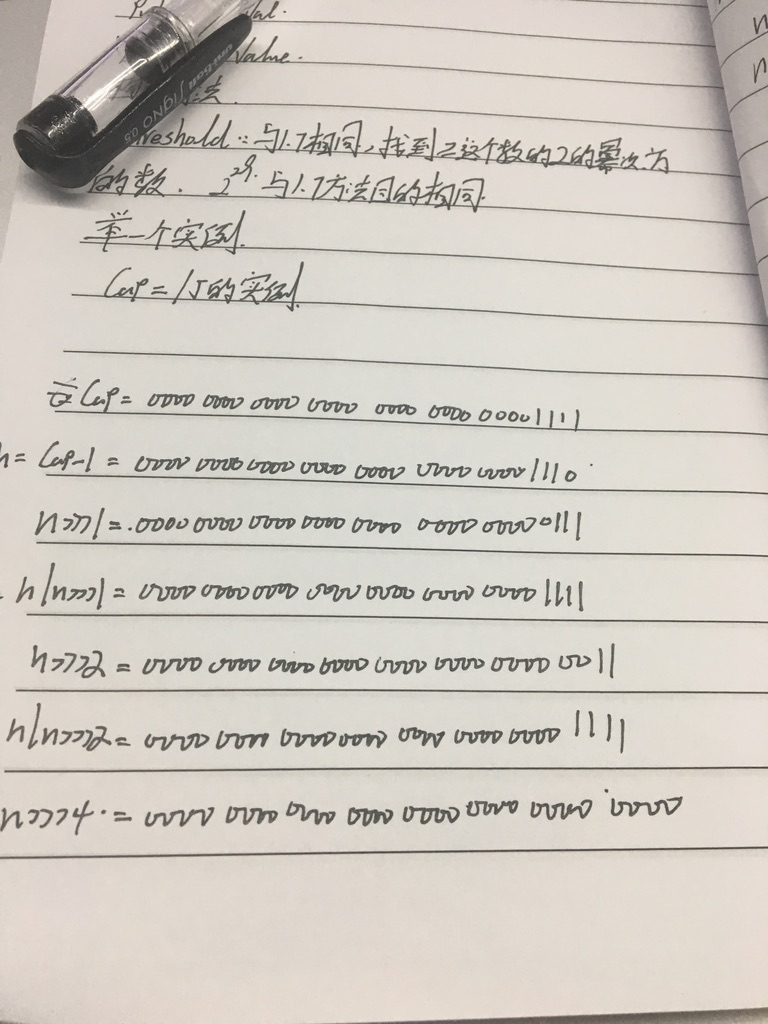 Value.
法.
reshold:与1.7相同,找到≥这个数的2的幂次为
的数. 与1.7方法目的相同.
举一个实例.
Cap=15的实例.
Cap= 0000 0000 0000 0000 0000 0000 0000 1111
n= Cap-1 = 0000 0000 0000 0000 0000 0000 0000 1110
n>>>1= 0000 0000 0000 0000 0000 0000 0000 0111
n|n>>>1= 0000 0000 0000 0000 0000 0000 0000 1111
n>>>2= 0000 0000 0000 0000 0000 0000 0000 0011
n|n>>>2= 0000 0000 0000 0000 0000 0000 0000 1111
n>>>4= 0000 0000 0000 0000 0000 0000 0000 0000
uni-ball SIGNO 0.5